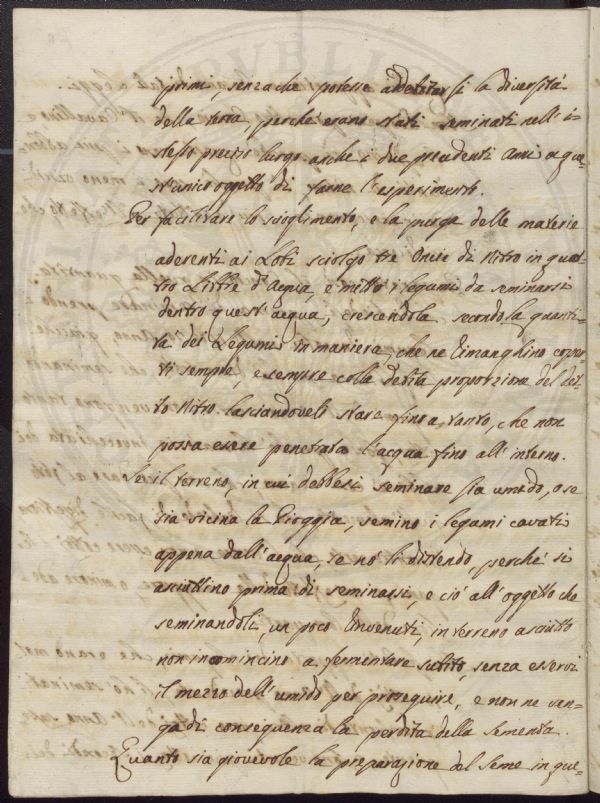 primi, senza che potesse addebitarsi la diversità
della terra, perchè erano stati seminati nell'i-
stesso preciso luogo anche i due precedenti Anni a que-
st'unico oggetto di farne l'esperimento.
Per facilitare lo scioglimento, e la purga delle materie
aderenti ai Loti sciolgo tre Oncie di Nitro in quat-
tro Libbre d'Acqua, e metto i legumi da seminarsi
dentro quest'acqua, crescendola secondo la quanti-
tà dei Legumi in maniera, che ne rimanghino coper-
ti sempre, e sempre colla detta proporzione del det-
to Nitro. lasciandoveli stare fino a tanto, che non
possa essere penetrata l'acqua fino all'interno.
Se il terreno, in cui debbesi seminare sia umido, o se
sia vicina la Pioggia, semino i legumi cavati
appena dall'acqua, se nò li distendo, perchè si
asciuttino prima di seminarsi, e ciò all'oggetto che
seminandoli, un poco rinvenuti, in terreno asciutto
non incomincino a fermentare subito, senza esservi
il mezzo dell'umido per proseguire, e non ne ven-
ga di conseguenza la perdita della sementa.
Quanto sia giovevole la preparazione del Seme in que-